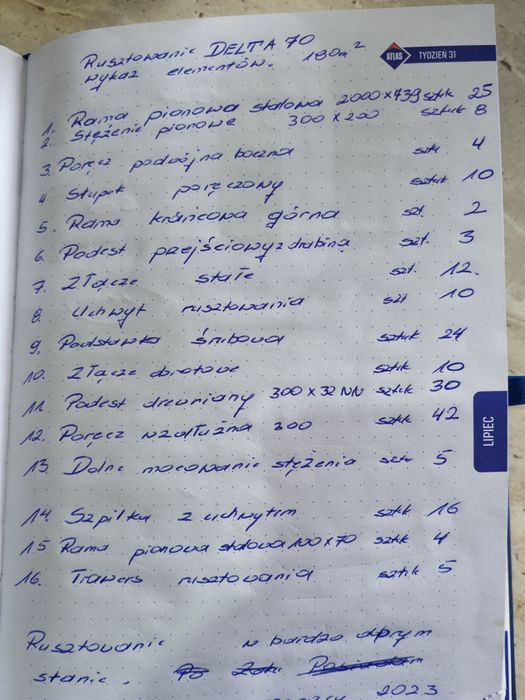 Rusztowanie DELTA 70
wykaz elementów. 180m²
ATLAS TYDZIEŃ 31
1. Rama pionowa stalowa 2000x739 sztk 25
2. Stężenie pionowe 300x200 sztuk 8
3. Poręcz podwójna boczna sztk 4
4 Słupek poręczowy sztuk 10
5. Rama krańcowa górna szt. 2
6. Podest przejściowy z drabiną szt. 3
7. Złącze stałe szt. 12.
8. Uchwyt rusztowania szt 10
9. Podstawka śrubowa sztuk 24
10. Złącze obrotowe sztk 10
11. Podest drewniany 300x32 NN sztuk 30
12. Poręcz wzdłużna 300 sztk 42
LIPIEC
13. Dolne mocowanie stężenia sztk 5
14. Szpilka z uchwytem sztk 16
15 Rama pionowa stalowa 100x70 sztk 4
16. Trawers rusztowania sztuk 5
Rusztowanie w bardzo dobrym
stanie.
2023